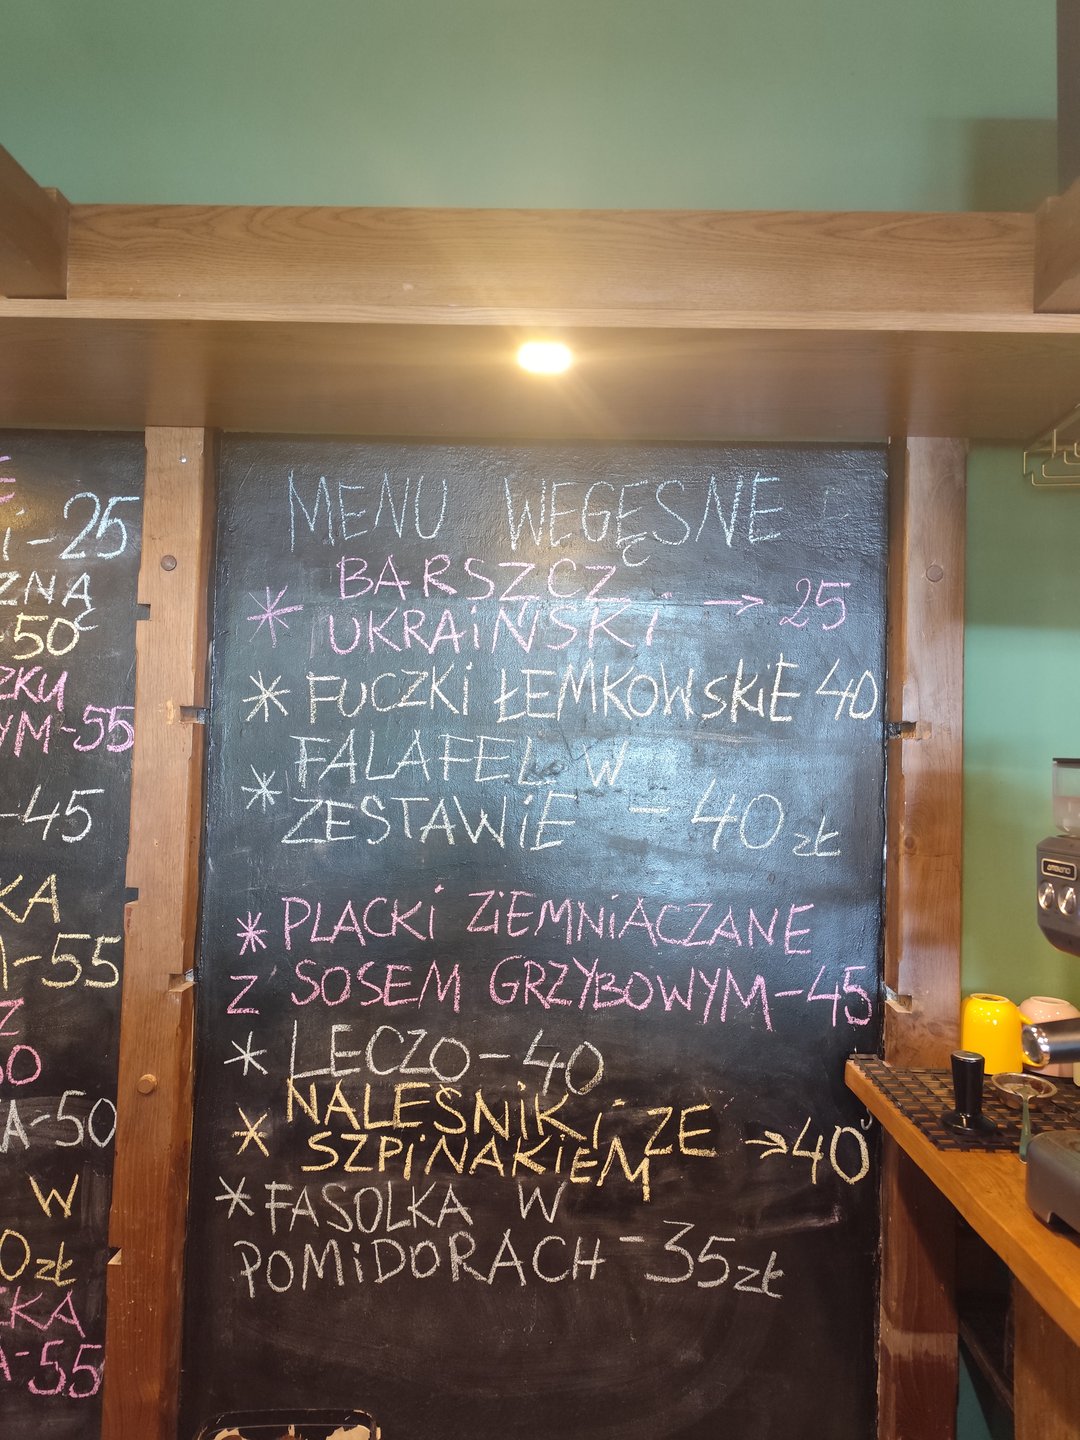 E
i-25
ZNĄ
-50
ZKU
YM-55
-45
KA
-55
Z
50
A-50
W
0zł
KA
A-55
MENU WEGĘSNE
* BARSZCZ
UKRAIŃSKI. → 25
* FUCZKI ŁEMKOWSKIE 40
* FALAFEL W
ZESTAWIE - 40 zł
* PLACKI ZIEMNIACZANE
Z SOSEM GRZYBOWYM-45
* LECZO-40
* NALEŚNIKI ZE
SZPINAKIEM → 40
* FASOLKA W
POMIDORACH -35zł